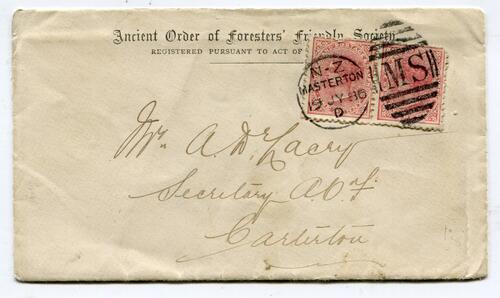 Ancient Order of Foresters' Friendly Society
REGISTERED PURSUANT TO ACT OF
N-Z
MASTERTON
19 JY 16
D
MS
Mr. A. De Lacey
Secretary A.O.F.
Carterton